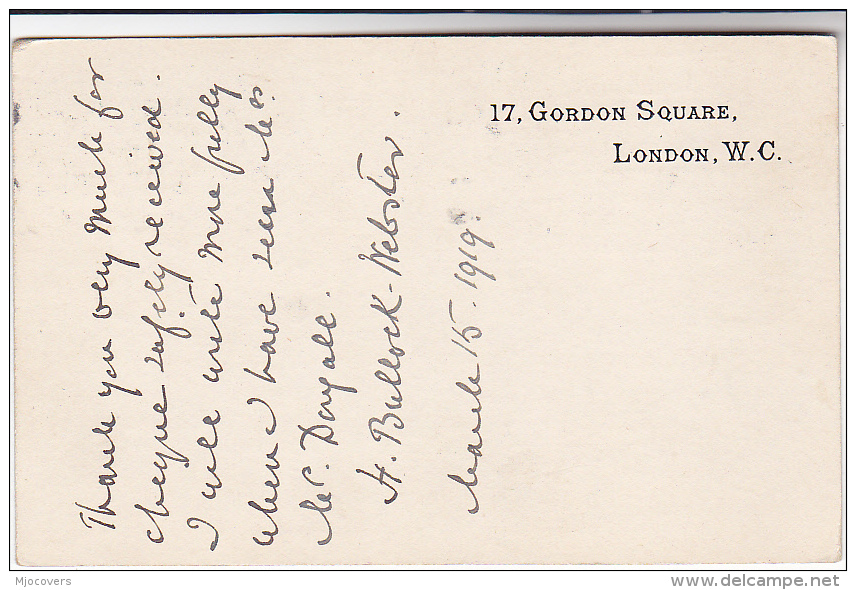 17, GORDON SQUARE,
LONDON, W.C.
Thank you very much for
cheque safely received.
I will write more fully
when I have seen Mrs
Mc. Dougall.
H. Bullock-Webster.
March 15. 1919.
Mjocovers
www.delcampe.net